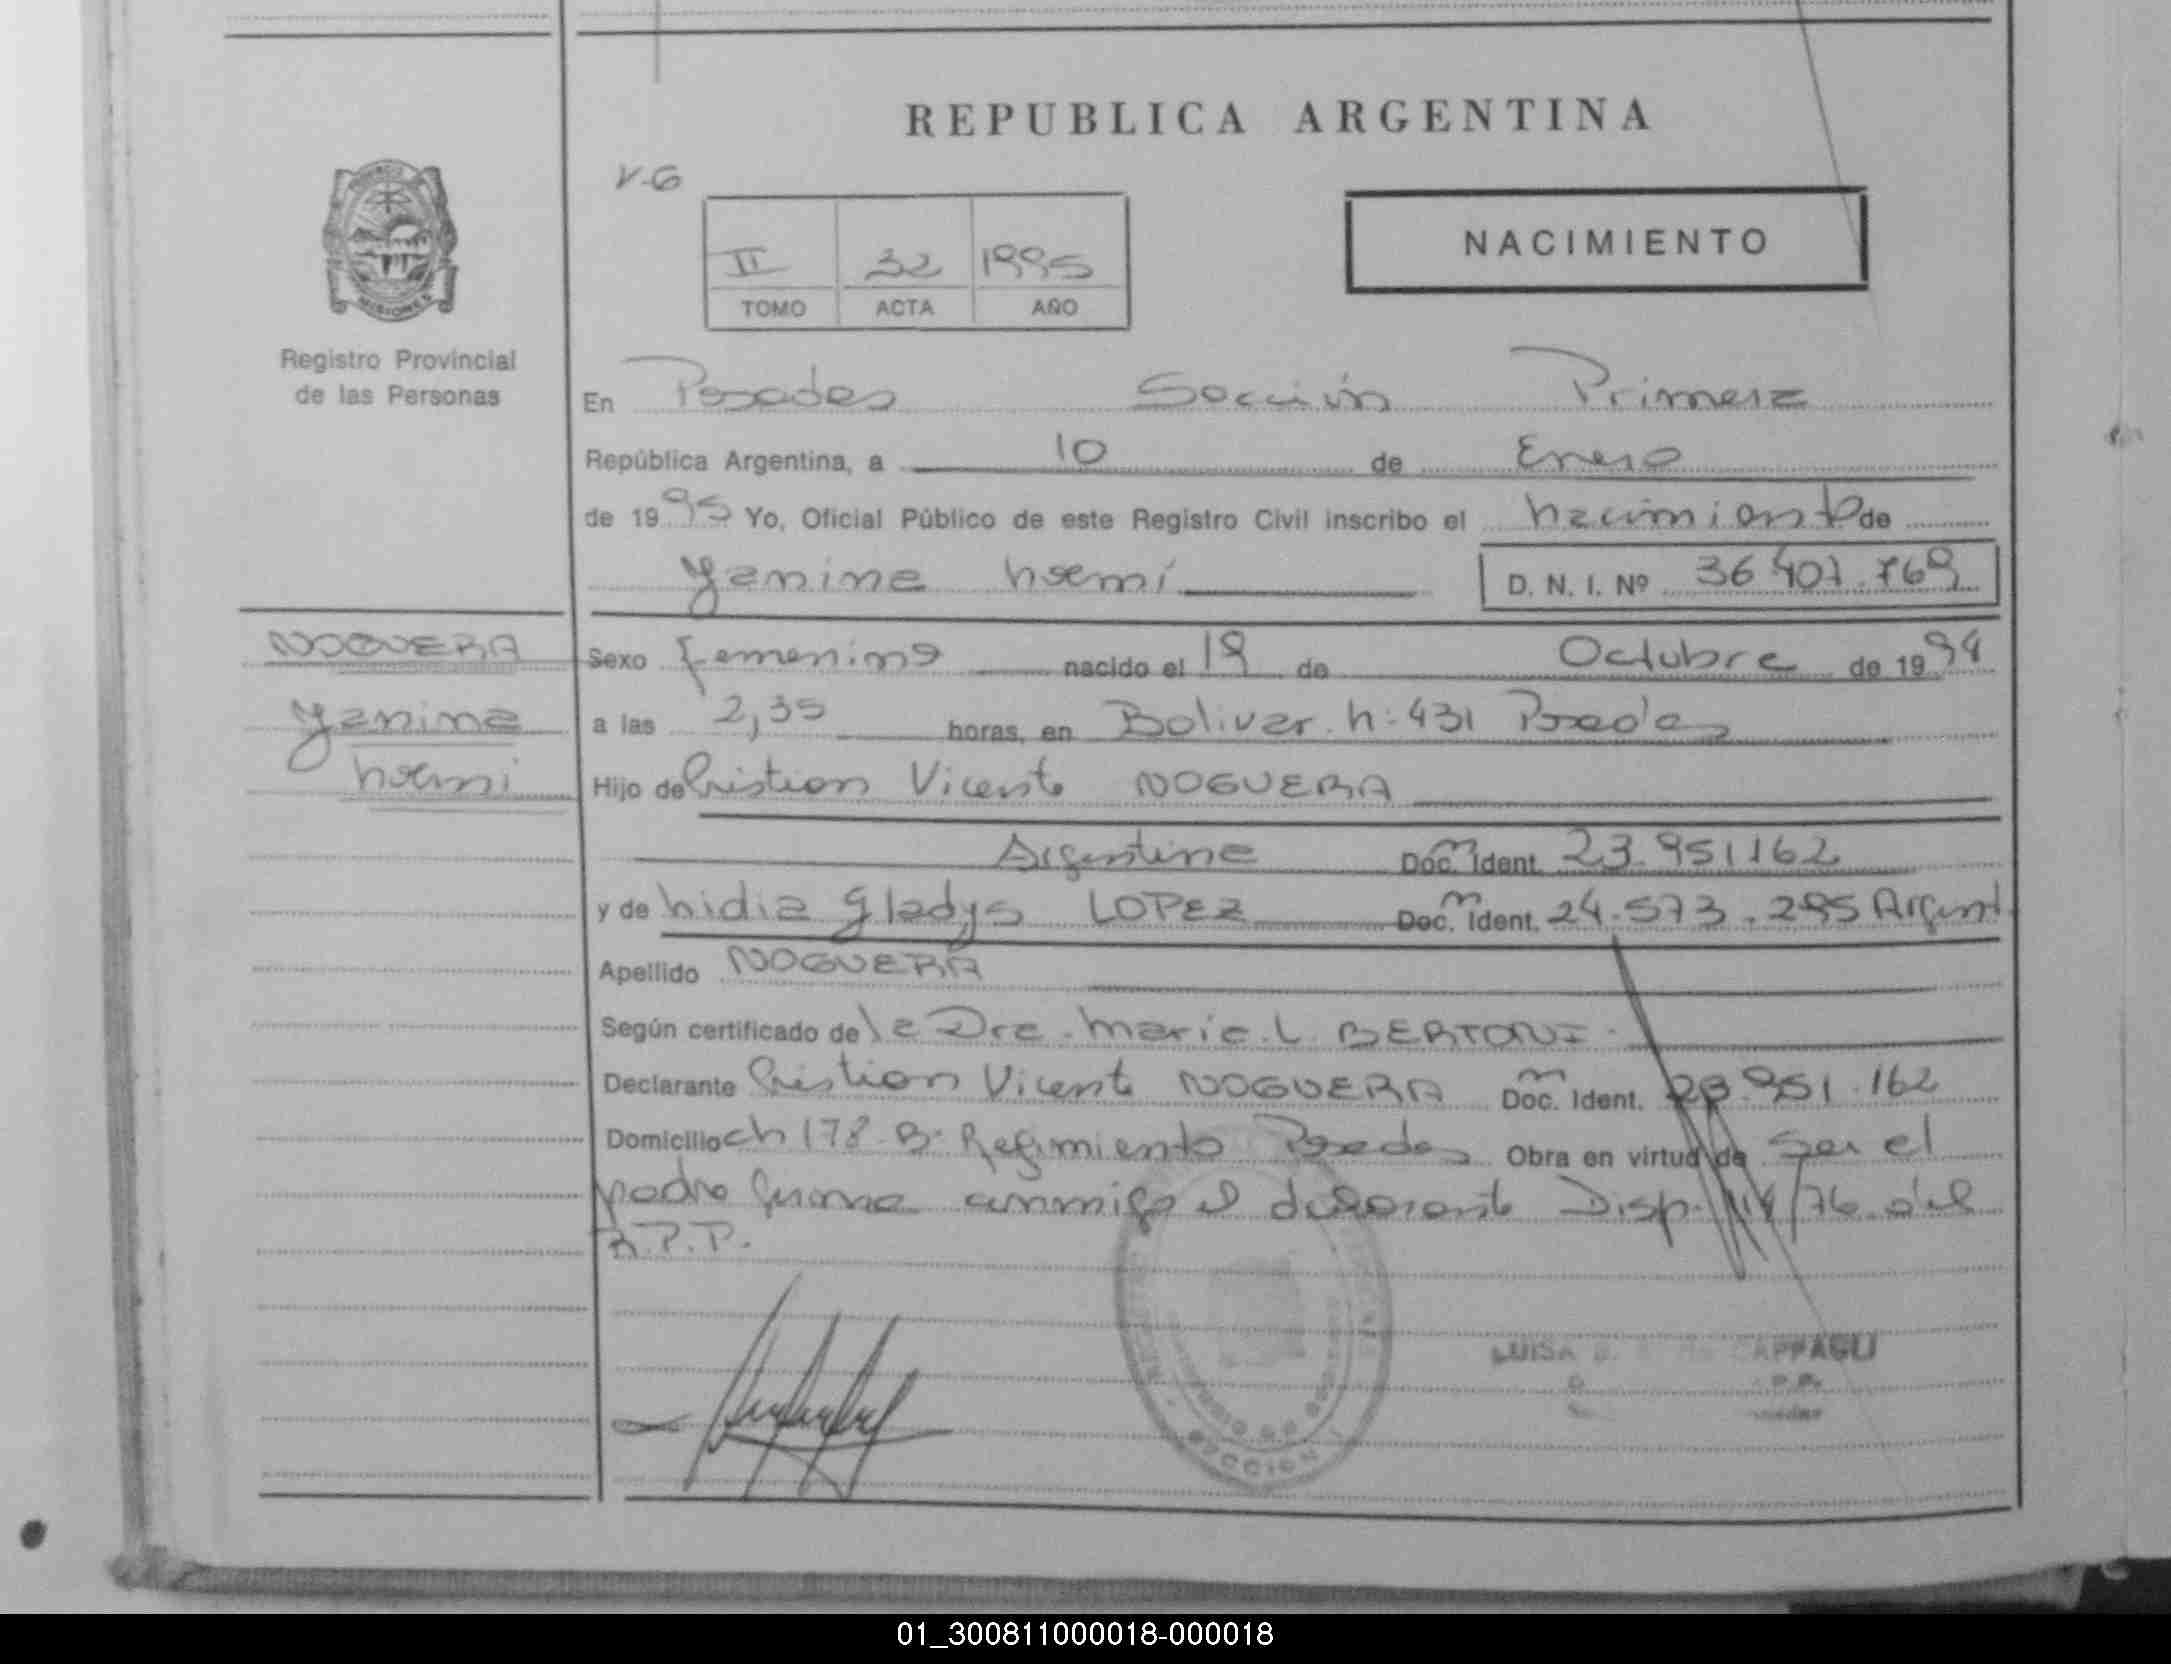 REPUBLICA ARGENTINA
V-6
II 32 1995
TOMO ACTA AÑO
NACIMIENTO
MISIONES
Registro Provincial
de las Personas
En Posadas Sección Primera
República Argentina, a 10 de Enero
de 1995 Yo, Oficial Público de este Registro Civil inscribo el nacimiento de
Yanina Noemí D. N. I. Nº 36.407.769
NOGUERA
Yanina
Noemi
Sexo femenino nacido el 19 de Octubre de 1994
a las 2,35 horas, en Bolivar. N: 431 Posadas
Hijo de Cristian Vicente NOGUERA
Argentina Doc. Ident. 23.951162
y de Nidia Gladys LOPEZ Doc. Ident. 24.573.295 Argent.
Apellido NOGUERA
Según certificado de la Dra. Maria. L BERTONI.
Declarante Cristian Vicente NOGUERA Doc. Ident. 23.951.162
Domicilio ch 178 Bº Regimiento Posadas Obra en virtud de ser el
padre firma conmigo el declarante Disp. /76 del
R.P.P.
SECCION 1
LUISA CAPPAGLI
01_300811000018-000018